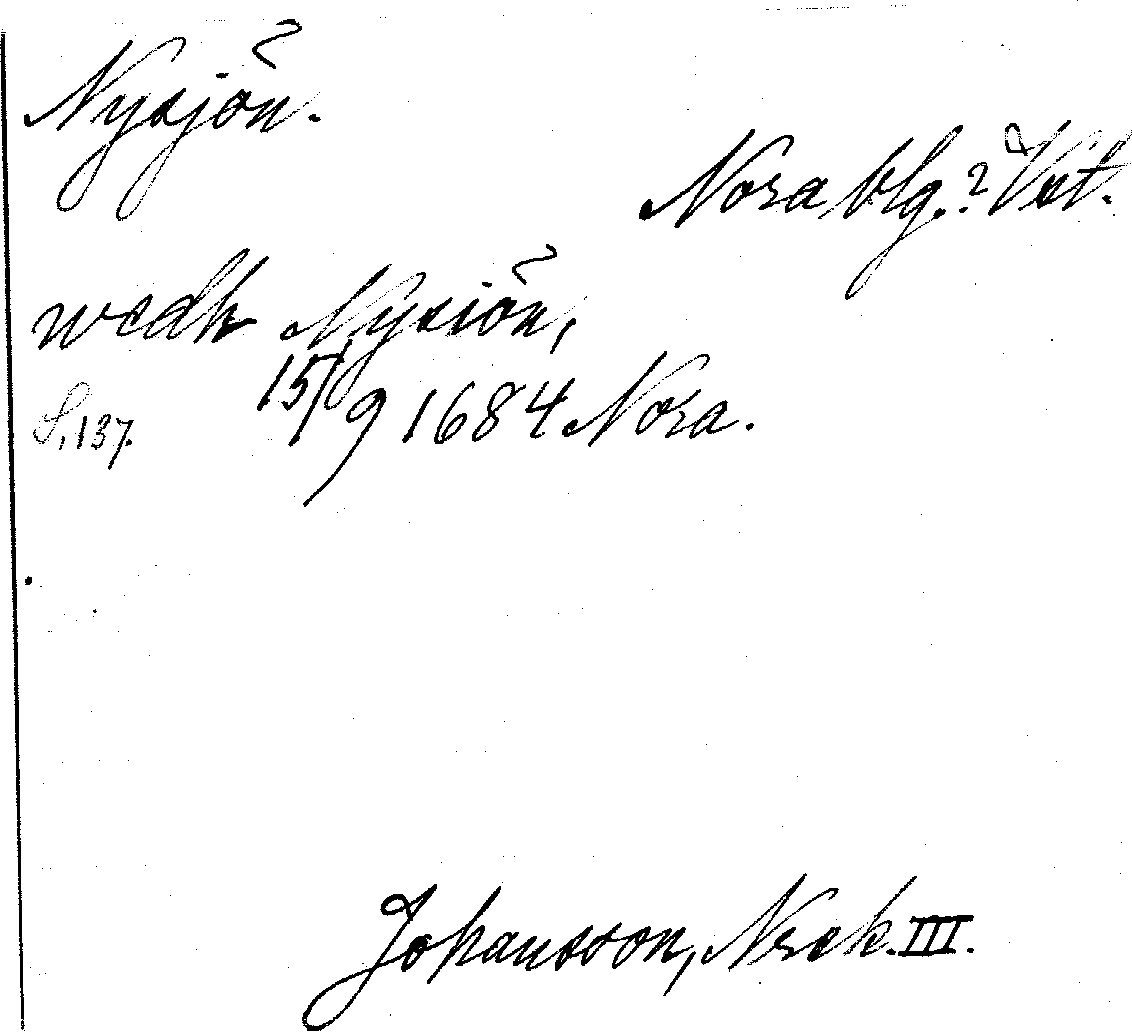 Nysjön.
Nora blg.? Vst.
wedh Nysiön,
15/9 1684 Nora.
S. 137.
Johansson, Nrck. III.